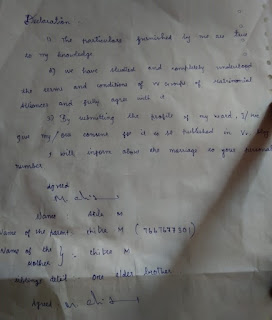 Declaration.
1) The particulars furnished by me are true
to my knowledge.
2) we have studied and completely understood
the terms and conditions of matrimonial
sciences and fully agree with it.
3) By submitting the profile of my ward, I/we
give my/our consent for it to be published in V.
& will inform above the marriage to your personal
number.
agreed
Name
Name of the parent. chitra M (7667677301)
Name of the
Mother } - chitra M
siblings detail one elder brother
agreed -